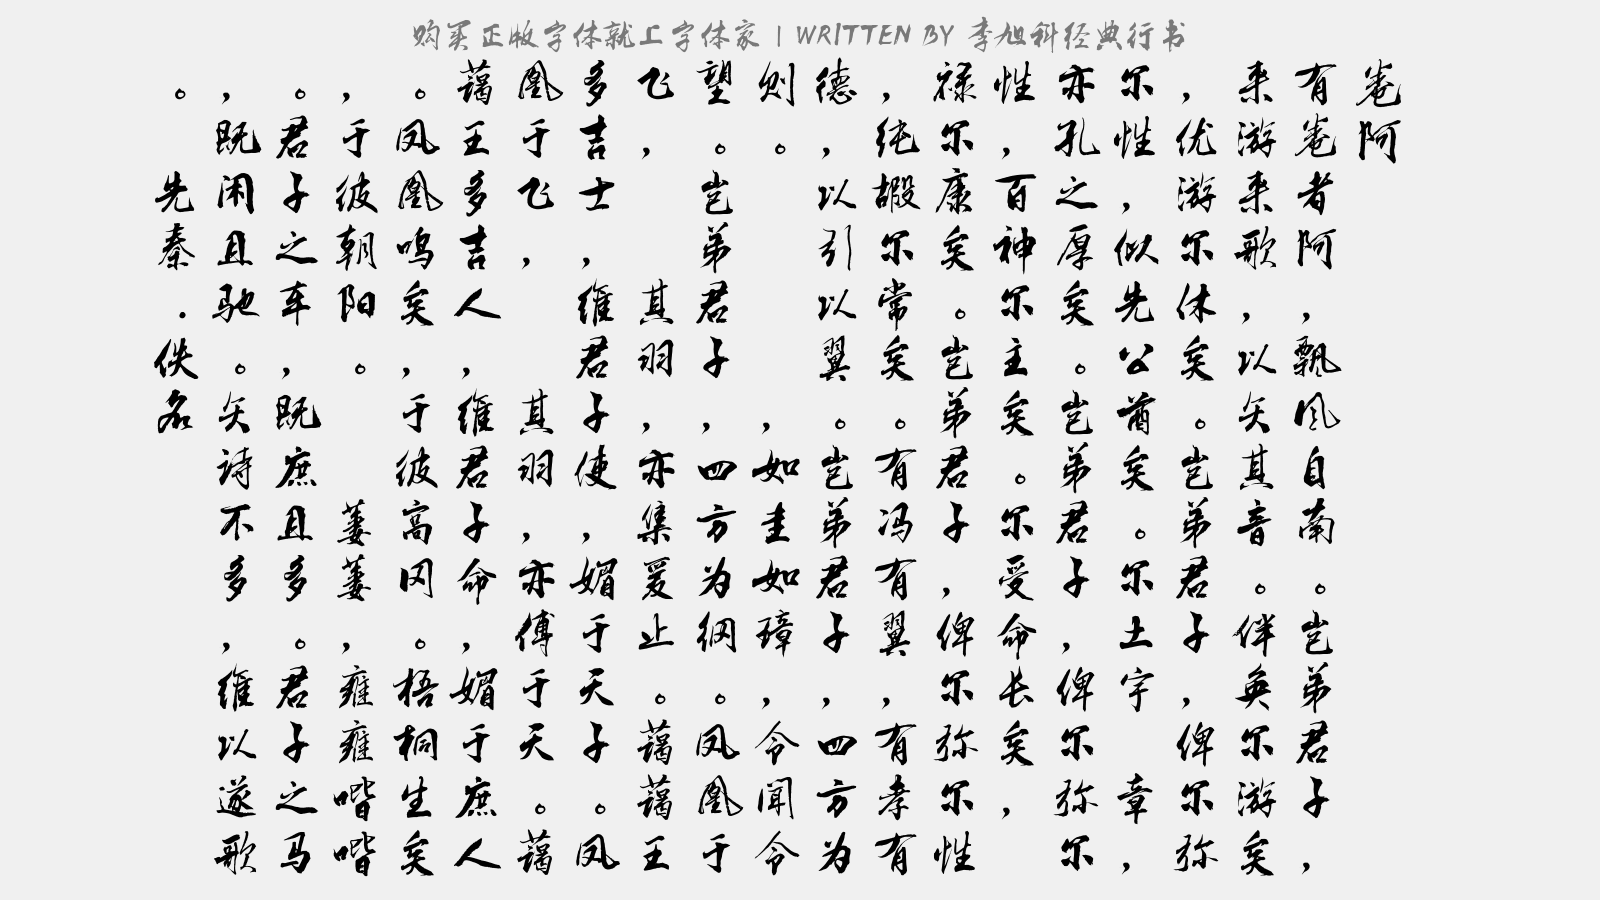 购买正版字体就上字体家 | WRITTEN BY 李旭科经典行书
卷阿
有卷者阿，飘风自南。岂弟君子，
来游来歌，以矢其音。伴奂尔游矣
，优游尔休矣。岂弟君子，俾尔弥
尔性，似先公酋矣。尔土宇 章，
亦孔之厚矣。岂弟君子，俾尔弥尔
性，百神尔主矣。尔受命长矣，
禄尔康矣。岂弟君子，俾尔弥尔性
，纯嘏尔常矣。有冯有翼，有孝有
德，以引以翼。岂弟君子，四方为
则。 ，如圭如璋，令闻令
望。岂弟君子，四方为纲。凤凰于
飞， 其羽，亦集爰止。蔼蔼王
多吉士，维君子使，媚于天子。凤
凰于飞， 其羽，亦傅于天。蔼
蔼王多吉人，维君子命，媚于庶人
。凤凰鸣矣，于彼高冈。梧桐生矣
，于彼朝阳。 萋萋，雍雍喈喈
。君子之车，既庶且多。君子之马
，既闲且驰。矢诗不多，维以遂歌
。 先秦．佚名